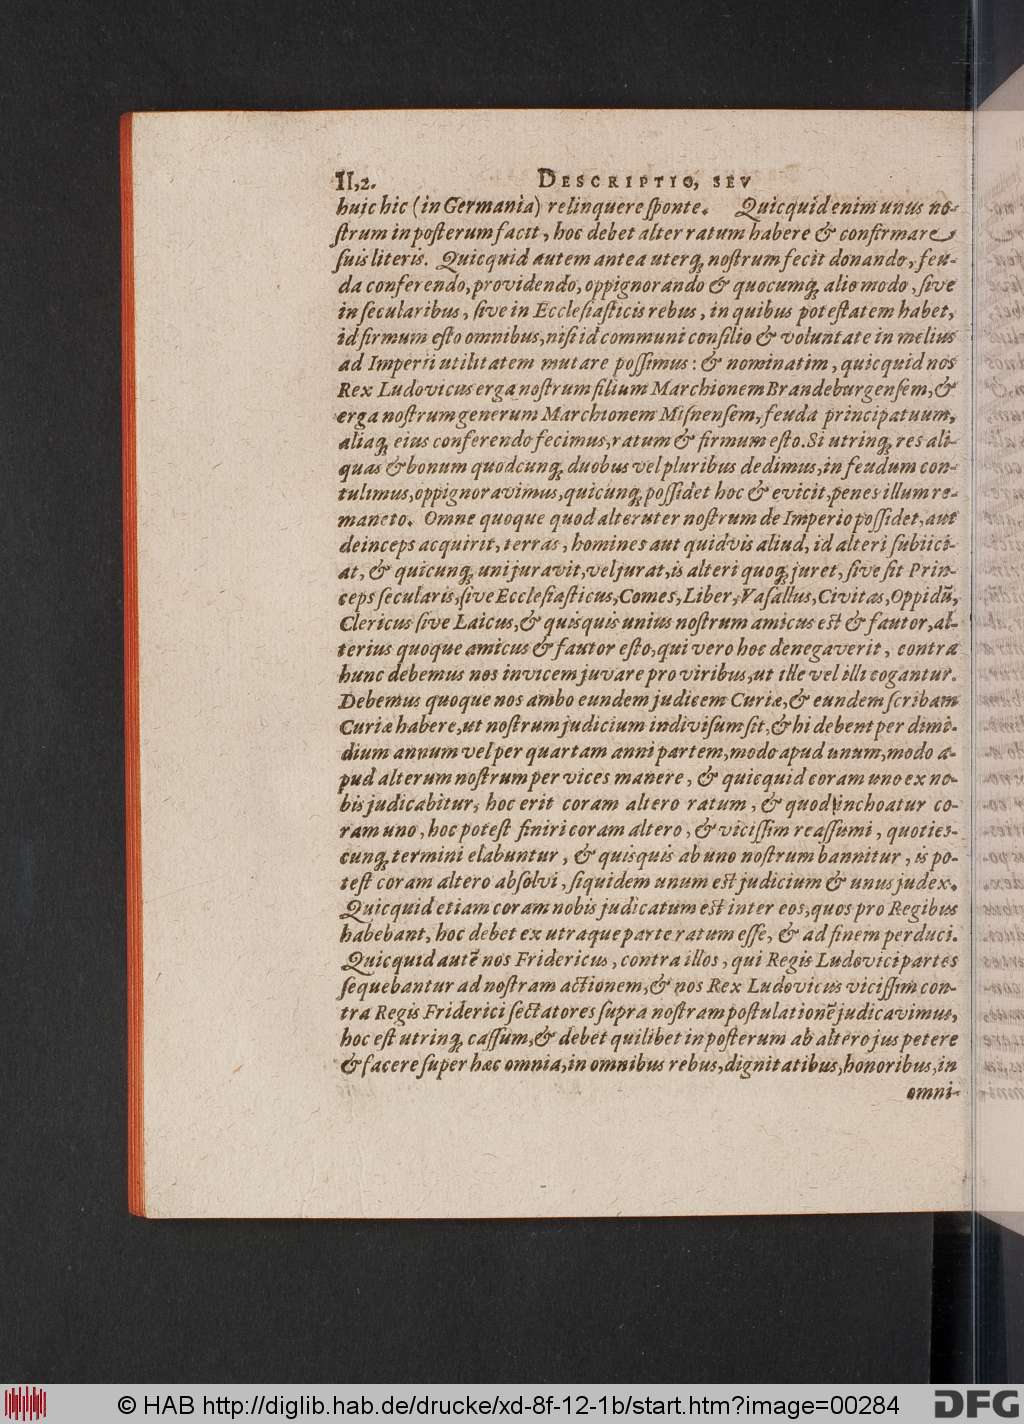 II,2. DESCRIPTIO, SEV
huic hic (in Germania) relinquere ſponte. Quicquid enim unus no-
ſtrum in poſterum facit, hoc debet alter ratum habere & confirmare
ſuis literis. Quicquid autem antea uterq; noſtrum fecit donando, feu-
da conferendo, providendo, oppignorando & quocumq; alio modo, ſive
in ſecularibus, ſive in Eccleſiaſticis rebus, in quibus poteſtatem habet,
id firmum eſto omnibus, niſi id communi conſilio & voluntate in melius
ad Imperii utilitatem mutare poſſimus: & nominatim, quicquid nos
Rex Ludovicus erga noſtrum filium Marchionem Brandeburgenſem, &
erga noſtrum generum Marchionem Miſnenſem, feuda principatuum,
aliaq; eius conferendo fecimus, ratum & firmum eſto. Si utrinq; res ali-
quas & bonum quodcunq; duobus vel pluribus dedimus, in feudum con-
tulimus, oppignoravimus, quicunq; poſſidet hoc & evicit, penes illum re-
maneto. Omne quoque quod alteruter noſtrum de Imperio poſſidet, aut
deinceps acquirit, terras, homines aut quidvis aliud, id alteri ſubiici-
at, & quicunq; uni juravit, vel jurat, is alteri quoq; juret, ſive ſit Prin-
ceps ſecularis, ſive Eccleſiaſticus, Comes, Liber, Vaſallus, Civitas, Oppidū,
Clericus ſive Laicus, & quisquis unius noſtrum amicus eſt & fautor, al-
terius quoque amicus & fautor eſto, qui vero hoc denegaverit, contra
hunc debemus nos invicem juvare pro viribus, ut ille vel illi cogantur.
Debemus quoque nos ambo eundem judicem Curiæ, & eundem ſcribam
Curiæ habere, ut noſtrum judicium indiviſum ſit, & hi debent per dimi-
dium annum vel per quartam anni partem, modo apud unum, modo a-
pud alterum noſtrum per vices manere, & quicquid coram uno ex no-
bis judicabitur, hoc erit coram altero ratum, & quod inchoatur co-
ram uno, hoc poteſt finiri coram altero, & viciſſim reaſſumi, quoties-
cunq; termini elabuntur, & quisquis ab uno noſtrum bannitur, is po-
teſt coram altero abſolvi, ſiquidem unum eſt judicium & unus judex.
Quicquid etiam coram nobis judicatum eſt inter eos, quos pro Regibus
habebant, hoc debet ex utraque parte ratum eſſe, & ad finem perduci.
Quicquid autē nos Fridericus, contra illos, qui Regis Ludovici partes
ſequebantur ad noſtram actionem, & nos Rex Ludovicus viciſſim con-
tra Regis Friderici ſectatores ſupra noſtram poſtulationē judicavimus,
hoc eſt utrinq; caſſum, & debet quilibet in poſterum ab altero jus petere
& facere ſuper hæc omnia, in omnibus rebus, dignitatibus, honoribus, in
omni-
© HAB http://diglib.hab.de/drucke/xd-8f-12-1b/start.htm?image=00284
DFG